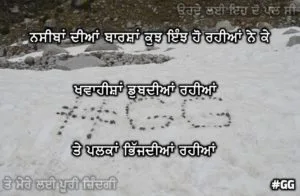 ਉਹਦੇ ਲਈ ਇਹ ਦੋ ਪਲ ਸੀ
ਨਸੀਬਾਂ ਦੀਆਂ ਬਾਰਸ਼ਾਂ ਕੁਝ ਇੰਝ ਹੋ ਰਹੀਆਂ ਨੇ ਕੇ
ਖਵਾਹੀਸ਼ਾਂ ਡੁਬਦੀਆਂ ਰਹੀਆਂ
#GG
ਤੇ ਪਲਕਾਂ ਭਿੱਜਦੀਆਂ ਰਹੀਆਂ
ਤੇ ਮੇਰੇ ਲਈ ਪੂਰੀ ਜ਼ਿੰਦਗੀ
#GG